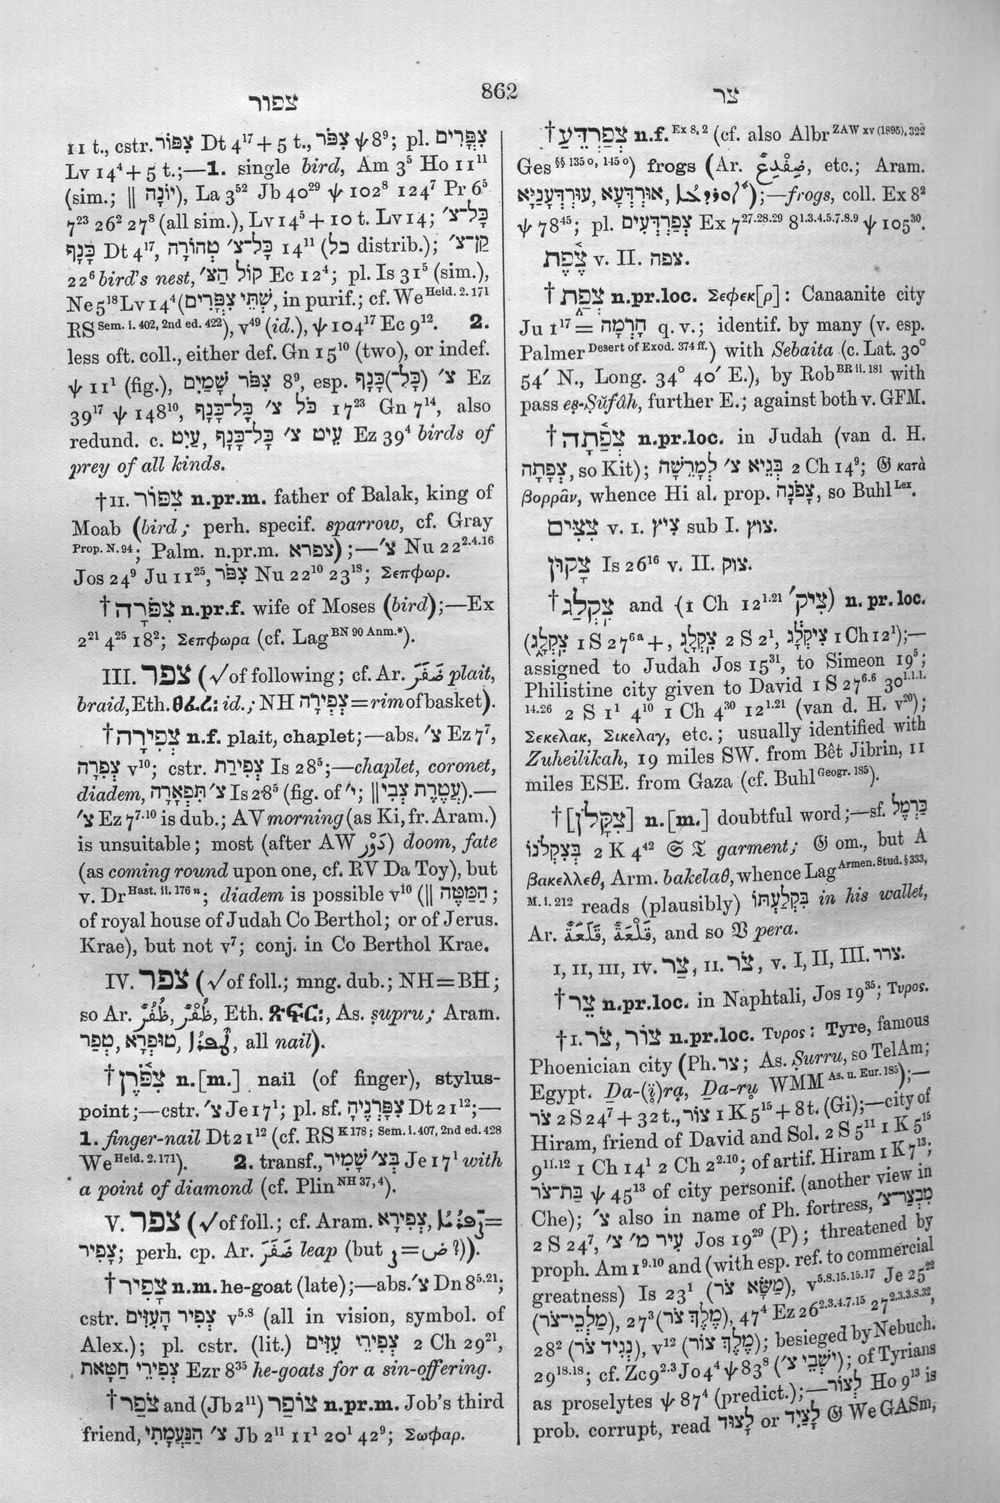 צפור
862
צר
11 t., cstr. צִפּוֹר Dt 4¹⁷ + 5 t., צִפֹּר ψ 8⁹; pl. צִפֳּרִים
Lv 14⁴ + 5 t.;—1. single bird, Am 3⁵ Ho 11¹¹
(sim.; ‖ יוֹנָה), La 3⁵² Jb 40²⁹ ψ 102⁸ 124⁷ Pr 6⁵
7²³ 26² 27⁸ (all sim.), Lv 14⁵ + 10 t. Lv 14; כָּל־צ׳
כָּנָף Dt 4¹⁷, כָּל־צ׳ טְהוֹרָה 14¹¹ (כל distrib.); קַן־צ׳
22⁶ bird's nest, קוֹל הַצ׳ Ec 12⁴; pl. Is 31⁵ (sim.),
Ne 5¹⁸ Lv 14⁴ (שְׁתֵּי צִפֳּרִים, in purif.; cf. We Heid. 2. 171
RS Sem. i. 402, 2nd ed. 422), v⁴⁹ (id.), ψ 104¹⁷ Ec 9¹². 2.
less oft. coll., either def. Gn 15¹⁰ (two), or indef.
ψ 11¹ (fig.), צִפֹּר שָׁמַיִם 8⁹, esp. צ׳ (כָּל־)כָּנָף Ez
39¹⁷ ψ 148¹⁰, כֹּל צ׳ כָּל־כָּנָף 17²³ Gn 7¹⁴, also
redund. c. עַיִט, עֵיט צ׳ כָּל־כָּנָף Ez 39⁴ birds of
prey of all kinds.
† II. צִפּוֹר n.pr.m. father of Balak, king of
Moab (bird; perh. specif. sparrow, cf. Gray
Prop. N. 94; Palm. n.pr.m. צפרא);—צ׳ Nu 22²·⁴·¹⁶
Jos 24⁹ Ju 11²⁵, צִפֹּר Nu 22¹⁰ 23¹⁸; Σεπφωρ.
† צִפֹּרָה n.pr.f. wife of Moses (bird);—Ex
2²¹ 4²⁵ 18²; Σεπφωρα (cf. Lag BN 90 Anm.*).
III. צפר (√ of following; cf. Ar. ضَفَرَ plait,
braid, Eth. ፀፈረ: id.; NH צְפִירָה = rim of basket).
† צְפִירָה n.f. plait, chaplet;—abs. צ׳ Ez 7⁷,
צְפִרָה v¹⁰; cstr. צְפִירַת Is 28⁵;—chaplet, coronet,
diadem, צ׳ תִּפְאָרָה Is 28⁵ (fig. of י׳; ‖ עֲטֶרֶת צְבִי).—
צ׳ Ez 7⁷·¹⁰ is dub.; AV morning (as Ki, fr. Aram.)
is unsuitable; most (after AW دَوْر) doom, fate
(as coming round upon one, cf. RV Da Toy), but
v. Dr Hast. ii. 176 n; diadem is possible v¹⁰ (‖ הַמַּטֶּה;
of royal house of Judah Co Berthol; or of Jerus.
Krae), but not v⁷; conj. in Co Berthol Krae.
IV. צפר (√ of foll.; mng. dub.; NH = BH;
so Ar. ظُفُرٌ, ظُفْرٌ, Eth. ጽፍር:, As. ṣupru; Aram.
טְפַר, טוּפְרָא, ܛܶܦܪܳܐ, all nail).
† צִפֹּרֶן n.[m.] nail (of finger), stylus-
point;—cstr. צ׳ Je 17¹; pl. sf. צִפָּרְנֶיהָ Dt 21¹²;—
1. finger-nail Dt 21¹² (cf. RS K 178; Sem. i. 407, 2nd ed. 428
We Heid. 2. 171). 2. transf., בְּצ׳ שָׁמִיר Je 17¹ with
a point of diamond (cf. Plin NH 37, 4).
V. צפר (√ of foll.; cf. Aram. צְפִירָא, ܨܶܦܪܳܝܳܐ =
צָפִיר; perh. cp. Ar. ضَفَرَ leap (but ܨ = ض ?)).
† צָפִיר n.m. he-goat (late);—abs. צ׳ Dn 8⁵·²¹;
cstr. צְפִיר הָעִזִּים v⁵·⁸ (all in vision, symbol. of
Alex.); pl. cstr. (lit.) צְפִירֵי עִזִּים 2 Ch 29²¹,
צְפִירֵי חַטָּאת Ezr 8³⁵ he-goats for a sin-offering.
† צֹפַר and (Jb 2¹¹) צוֹפַר n.pr.m. Job's third
friend, צ׳ הַנַּעֲמָתִי Jb 2¹¹ 11¹ 20¹ 42⁹; Σωφαρ.
† צְפַרְדֵּעַ n.f. Ex 8, 2 (cf. also Albr ZAW xv (1895), 322
Ges §§ 135 o, 145 o) frogs (Ar. ضِفْدِعٌ, etc.; Aram.
עוּרְדְּעָנַיָּא, עוּרְדְּעָא, אוּרְדְּעָא, ܐܘܪܕܥܐ);—frogs, coll. Ex 8²
ψ 78⁴⁵; pl. צְפַרְדְּעִים Ex 7²⁷·²⁸·²⁹ 8¹·³·⁴·⁵·⁷·⁸·⁹ ψ 105³⁰.
צֶפֶת v. II. צפה.
† צְפַת n.pr.loc. Σεφεκ[ρ]: Canaanite city
Ju 1¹⁷ = חָרְמָה q. v.; identif. by many (v. esp.
Palmer Desert of Exod. 374 ff.) with Sebaita (c. Lat. 30°
54′ N., Long. 34° 40′ E.), by Rob BR ii. 181 with
pass eṣ-Ṣŭfâh, further E.; against both v. GFM.
† צְפַתָה n.pr.loc. in Judah (van d. H.
צְפָתָה, so Kit); בְּגֵיא צ׳ לְמָרֵשָׁה 2 Ch 14⁹; 𝔊 κατὰ
βορρᾶν, whence Hi al. prop. צָפֹנָה, so Buhl Lex.
צִצִים v. I. צִיץ sub I. צוץ.
צָקוּן Is 26¹⁶ v. II. צוק.
† צִקְלַג and (1 Ch 12¹·²¹ צִיק׳) n.pr.loc.
(צִקְלָג 1 S 27⁶ᵃ +, צִקְלָג 2 S 2¹, צִיקְלָג 1 Ch 12¹);—
assigned to Judah Jos 15³¹, to Simeon 19⁵;
Philistine city given to David 1 S 27⁶·⁶ 30¹·¹·¹·
¹⁴·²⁶ 2 S 1¹ 4¹⁰ 1 Ch 4³⁰ 12¹·²¹ (van d. H. v²⁰);
Σεκελακ, Σικελαγ, etc.; usually identified with
Zuheilikah, 19 miles SW. from Bêt Jibrin, 11
miles ESE. from Gaza (cf. Buhl Geogr. 185).
† [צִקָּלֹן] n.[m.] doubtful word;—sf. כַּרְמֶל
בְּצִקְלֹנוֹ 2 K 4⁴² 𝔖 𝔗 garment; 𝔊 om., but A
βακελλεθ, Arm. bakelaθ, whence Lag Armen. Stud. § 333,
M. i. 212 reads (plausibly) בְּקַלְעָתּוֹ in his wallet,
Ar. قَلْعَةٌ, قَلَعَةٌ, and so 𝔙 pera.
I, II, III, IV. צַר, II. צֹר, v. I, II, III. צרר.
† צֵר n.pr.loc. in Naphtali, Jos 19³⁵; Τυρος.
† I. צֹר, צוֹר n.pr.loc. Τυρος: Tyre, famous
Phoenician city (Ph. צר; As. Ṣurru, so TelAm;
Egypt. Ḏa-(ï)rą, Ḏa-rų WMM As. u. Eur. 185);—
צֹר 2 S 24⁷ + 32 t., צוֹר 1 K 5¹⁵ + 8 t. (Gi);—city of
Hiram, friend of David and Sol. 2 S 5¹¹ 1 K 5¹⁵
9¹¹·¹² 1 Ch 14¹ 2 Ch 2²·¹⁰; of artif. Hiram 1 K 7¹³;
בַּת־צֹר ψ 45¹³ of city personif. (another view in
Che); צ׳ also in name of Ph. fortress, מִבְצַר־צ׳
2 S 24⁷, עִיר מ׳ צ׳ Jos 19²⁹ (P); threatened by
proph. Am 1⁹·¹⁰ and (with esp. ref. to commercial
greatness) Is 23¹ (מַשָּׂא צֹר), v⁵·⁸·¹⁵·¹⁵·¹⁷ Je 25²²
(מַלְכֵי־צֹר), 27³ (מֶלֶךְ צֹר), 47⁴ Ez 26²·³·⁴·⁷·¹⁵ 27²·³·³·⁸·³²,
28² (נְגִיד צֹר), v¹² (מֶלֶךְ צוֹר); besieged by Nebuch.
29¹⁸·¹⁸; cf. Zc 9²·³ Jo 4⁴ ψ 83⁸ (יֹשְׁבֵי צ׳); of Tyrians
as proselytes ψ 87⁴ (predict.);—לְצוֹר Ho 9¹³ is
prob. corrupt, read לָצוּד or לָצַיִד 𝔊 We GASm,